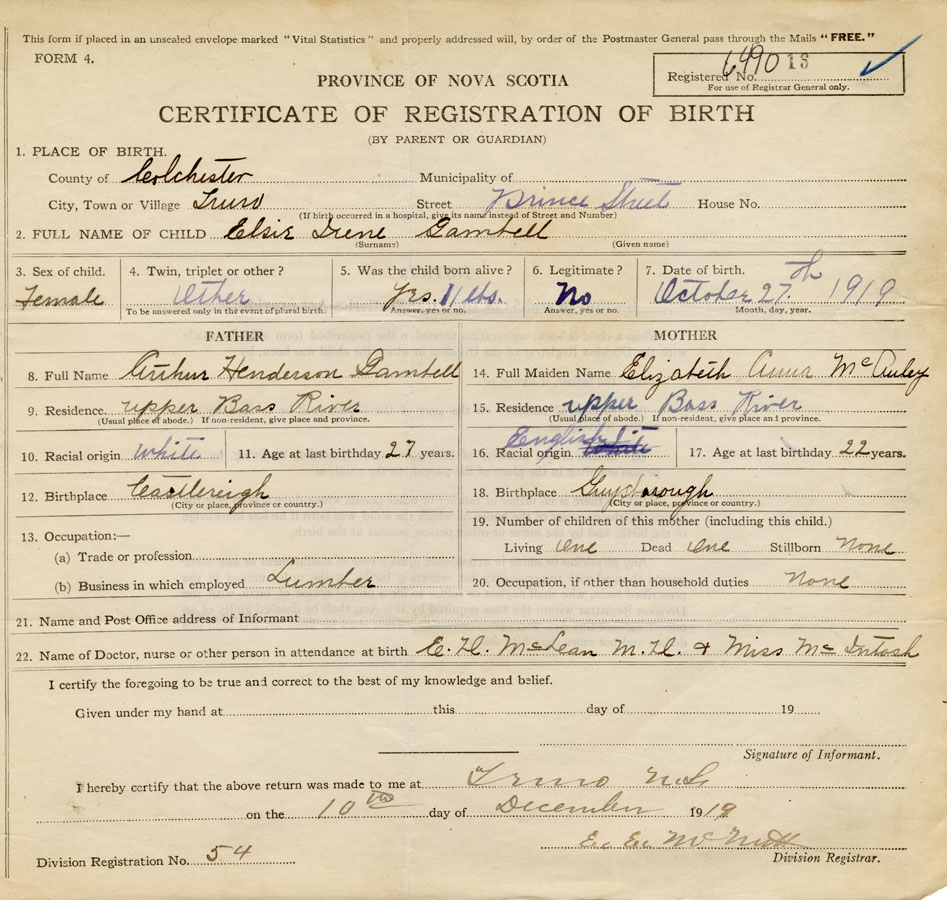 This form if placed in an unsealed envelope marked "Vital Statistics" and properly addressed will, by order of the Postmaster General pass through the Mails "FREE."
FORM 4.
Registered No. 6490 18
For use of Registrar General only.
PROVINCE OF NOVA SCOTIA
CERTIFICATE OF REGISTRATION OF BIRTH
(BY PARENT OR GUARDIAN)
1. PLACE OF BIRTH.
County of Colchester Municipality of
City, Town or Village Truro Street Prince Street House No.
(If birth occurred in a hospital, give its name instead of Street and Number)
2. FULL NAME OF CHILD Elsie Irene Gambell
(Surname) (Given name)
3. Sex of child. 4. Twin, triplet or other? 5. Was the child born alive? 6. Legitimate? 7. Date of birth.
Female Other Yes. 11 lbs. No October 27th 1919
To be answered only in the event of plural birth. Answer, yes or no. Answer, yes or no. Month, day, year.
FATHER MOTHER
8. Full Name Arthur Henderson Gambell 14. Full Maiden Name Elizabeth Anna McAuley
9. Residence upper Bass River 15. Residence upper Bass River
(Usual place of abode.) If non-resident, give place and province. (Usual place of abode.) If non-resident, give place and province.
10. Racial origin White 11. Age at last birthday 27 years. 16. Racial origin English White 17. Age at last birthday 22 years.
12. Birthplace Castlereigh 18. Birthplace Guysborough
(City or place, province or country.) (City or place, province or country.)
13. Occupation:— 19. Number of children of this mother (including this child.)
(a) Trade or profession Living one Dead one Stillborn None
(b) Business in which employed Lumber 20. Occupation, if other than household duties None
21. Name and Post Office address of Informant
22. Name of Doctor, nurse or other person in attendance at birth E. H. McLean M. H. & Miss McIntosh
I certify the foregoing to be true and correct to the best of my knowledge and belief.
Given under my hand at this day of 19
Signature of Informant.
I hereby certify that the above return was made to me at Truro N.S.
on the 10th day of December 1919
E. E. McNutt
Division Registration No. 54 Division Registrar.